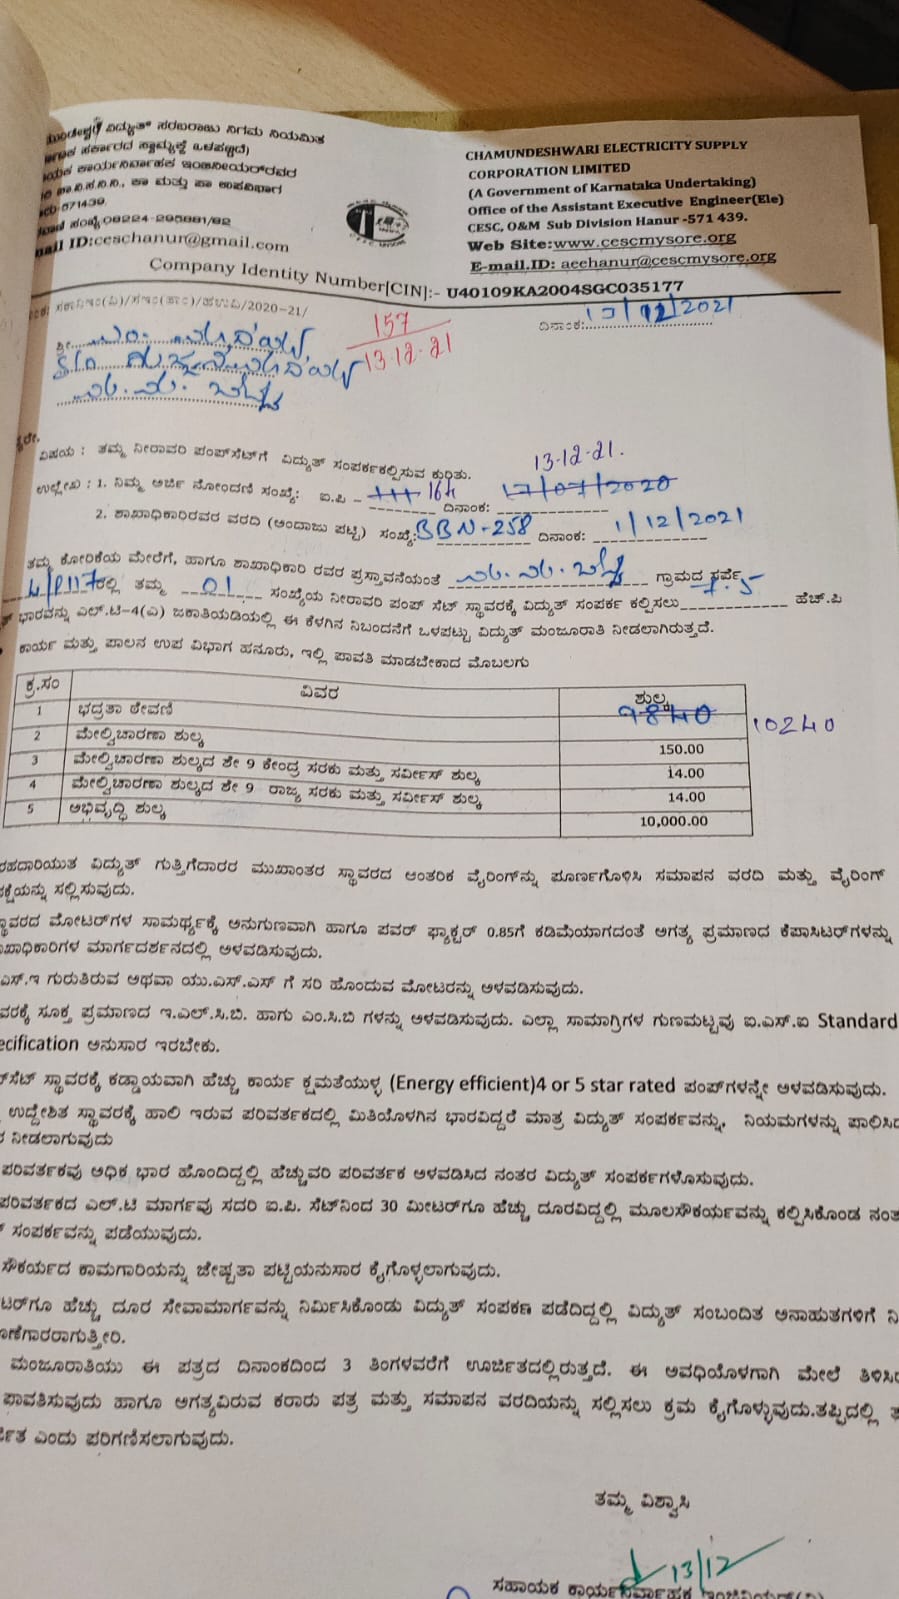 ವಿದ್ಯುತ್ ಸರಬರಾಜು ನಿಗಮ ನಿಯಮಿತ
ಸರ್ಕಾರದ ಸ್ವಾಮ್ಯಕ್ಕೆ ಒಳಪಟ್ಟಿದೆ)
ಕಾರ್ಯನಿರ್ವಾಹಕ ಇಂಜಿನೀಯರ್‌ರವರ
ಮತ್ತು ಪಾ ಉಪವಿಭಾಗ
-571439.
ಸಂಖ್ಯೆ:08224-295881/82
mail ID:ceschanur@gmail.com
CHAMUNDESHWARI ELECTRICITY SUPPLY
CORPORATION LIMITED
(A Government of Karnataka Undertaking)
Office of the Assistant Executive Engineer(Ele)
CESC, O&M Sub Division Hanur -571 439.
Web Site:www.cescmysore.org
E-mail.ID: aeehanur@cescmysore.org
Company Identity Number[CIN]:- U40109KA2004SGC035177
/2020-21/
157
13.12.21
ದಿನಾಂಕ: 13/12/2021
ಶ್ರೀ
ವಿಷಯ : ತಮ್ಮ ನೀರಾವರಿ ಪಂಪ್‌ಸೆಟ್‌ಗೆ ವಿದ್ಯುತ್ ಸಂಪರ್ಕಕಲ್ಪಿಸುವ ಕುರಿತು.
13.12.21.
ಉಲ್ಲೇಖ : 1. ನಿಮ್ಮ ಅರ್ಜಿ ನೋಂದಣಿ ಸಂಖ್ಯೆ: ಐ.ಪಿ - ದಿನಾಂಕ: 17/07/2020
2. ಶಾಖಾಧಿಕಾರಿರವರ ವರದಿ (ಅಂದಾಜು ಪಟ್ಟಿ) ಸಂಖ್ಯೆ: BBN-258 ದಿನಾಂಕ: 1/12/2021
ತಮ್ಮ ಕೋರಿಕೆಯ ಮೇರೆಗೆ, ಹಾಗೂ ಶಾಖಾಧಿಕಾರಿ ರವರ ಪ್ರಸ್ತಾವನೆಯಂತೆ ಗ್ರಾಮದ ಸರ್ವೆ
ರಲ್ಲಿ ತಮ್ಮ 01 ಸಂಖ್ಯೆಯ ನೀರಾವರಿ ಪಂಪ್ ಸೆಟ್ ಸ್ಥಾವರಕ್ಕೆ ವಿದ್ಯುತ್ ಸಂಪರ್ಕ ಕಲ್ಪಿಸಲು 7.5 ಹೆಚ್.ಪಿ
ಭಾರವನ್ನು ಎಲ್.ಟಿ-4(ಎ) ಜಕಾತಿಯಡಿಯಲ್ಲಿ ಈ ಕೆಳಗಿನ ನಿಬಂದನೆಗೆ ಒಳಪಟ್ಟು ವಿದ್ಯುತ್ ಮಂಜೂರಾತಿ ನೀಡಲಾಗಿರುತ್ತದೆ.
ಕಾರ್ಯ ಮತ್ತು ಪಾಲನ ಉಪ ವಿಭಾಗ ಹನೂರು, ಇಲ್ಲಿ ಪಾವತಿ ಮಾಡಬೇಕಾದ ಮೊಬಲಗು
ಕ್ರ.ಸಂ ವಿವರ ಶುಲ್ಕ
1 ಭದ್ರತಾ ಠೇವಣಿ 9840 10240
2 ಮೇಲ್ವಿಚಾರಣಾ ಶುಲ್ಕ 150.00
3 ಮೇಲ್ವಿಚಾರಣಾ ಶುಲ್ಕದ ಶೇ 9 ಕೇಂದ್ರ ಸರಕು ಮತ್ತು ಸರ್ವೀಸ್ ಶುಲ್ಕ 14.00
4 ಮೇಲ್ವಿಚಾರಣಾ ಶುಲ್ಕದ ಶೇ 9 ರಾಜ್ಯ ಸರಕು ಮತ್ತು ಸರ್ವೀಸ್ ಶುಲ್ಕ 14.00
5 ಅಭಿವೃದ್ಧಿ ಶುಲ್ಕ 10,000.00
ವಿದ್ಯುತ್ ಗುತ್ತಿಗೆದಾರರ ಮುಖಾಂತರ ಸ್ಥಾವರದ ಆಂತರಿಕ ವೈರಿಂಗ್‌ನ್ನು ಪೂರ್ಣಗೊಳಿಸಿ ಸಮಾಪನ ವರದಿ ಮತ್ತು ವೈರಿಂಗ್
ಸಲ್ಲಿಸುವುದು.
ಮೋಟರ್‌ಗಳ ಸಾಮರ್ಥ್ಯಕ್ಕೆ ಅನುಗುಣವಾಗಿ ಹಾಗೂ ಪವರ್ ಫ್ಯಾಕ್ಟರ್ 0.85ಗೆ ಕಡಿಮೆಯಾಗದಂತೆ ಅಗತ್ಯ ಪ್ರಮಾಣದ ಕೆಪಾಸಿಟರ್‌ಗಳನ್ನು
ಮಾರ್ಗದರ್ಶನದಲ್ಲಿ ಅಳವಡಿಸುವುದು.
ಎಸ್.ಇ ಗುರುತಿರುವ ಅಥವಾ ಯು.ಎಸ್.ಎಸ್ ಗೆ ಸರಿ ಹೊಂದುವ ಮೋಟರನ್ನು ಅಳವಡಿಸುವುದು.
ಸೂಕ್ತ ಪ್ರಮಾಣದ ಇ.ಎಲ್.ಸಿ.ಬಿ. ಹಾಗು ಎಂ.ಸಿ.ಬಿ ಗಳನ್ನು ಅಳವಡಿಸುವುದು. ಎಲ್ಲಾ ಸಾಮಾಗ್ರಿಗಳ ಗುಣಮಟ್ಟವು ಐ.ಎಸ್.ಐ Standard
ecification ಅನುಸಾರ ಇರಬೇಕು.
ಸ್ಥಾವರಕ್ಕೆ ಕಡ್ಡಾಯವಾಗಿ ಹೆಚ್ಚು ಕಾರ್ಯ ಕ್ಷಮತೆಯುಳ್ಳ (Energy efficient)4 or 5 star rated ಪಂಪ್‌ಗಳನ್ನೇ ಅಳವಡಿಸುವುದು.
ಉದ್ದೇಶಿತ ಸ್ಥಾವರಕ್ಕೆ ಹಾಲಿ ಇರುವ ಪರಿವರ್ತಕದಲ್ಲಿ ಮಿತಿಯೊಳಗಿನ ಭಾರವಿದ್ದರೆ ಮಾತ್ರ ವಿದ್ಯುತ್ ಸಂಪರ್ಕವನ್ನು, ನಿಯಮಗಳನ್ನು
ನೀಡಲಾಗುವುದು
ಪರಿವರ್ತಕವು ಅಧಿಕ ಭಾರ ಹೊಂದಿದ್ದಲ್ಲಿ ಹೆಚ್ಚುವರಿ ಪರಿವರ್ತಕ ಅಳವಡಿಸಿದ ನಂತರ ವಿದ್ಯುತ್ ಸಂಪರ್ಕಗಳೊಸುವುದು.
ಪರಿವರ್ತಕದ ಎಲ್.ಟಿ ಮಾರ್ಗವು ಸದರಿ ಐ.ಪಿ. ಸೆಟ್‌ನಿಂದ 30 ಮೀಟರ್‌ಗೂ ಹೆಚ್ಚು ದೂರವಿದ್ದಲ್ಲಿ ಮೂಲಸೌಕರ್ಯವನ್ನು ಕಲ್ಪಿಸಿಕೊಂಡ
ಸಂಪರ್ಕವನ್ನು ಪಡೆಯುವುದು.
ಸೌಕರ್ಯದ ಕಾಮಗಾರಿಯನ್ನು ಜೇಷ್ಟತಾ ಪಟ್ಟಿಯನುಸಾರ ಕೈಗೊಳ್ಳಲಾಗುವುದು.
ಹೆಚ್ಚು ದೂರ ಸೇವಾಮಾರ್ಗವನ್ನು ನಿರ್ಮಿಸಿಕೊಂಡು ವಿದ್ಯುತ್ ಸಂಪಕಣ ಪಡೆದಿದ್ದಲ್ಲಿ ವಿದ್ಯುತ್ ಸಂಬಂದಿತ ಅನಾಹುತಗಳಿಗೆ
ಮಂಜೂರಾತಿಯು ಈ ಪತ್ರದ ದಿನಾಂಕದಿಂದ 3 ತಿಂಗಳವರೆಗೆ ಊರ್ಜಿತದಲ್ಲಿರುತ್ತದೆ. ಈ ಅವಧಿಯೊಳಗಾಗಿ ಮೇಲೆ
ಪಾವತಿಸುವುದು ಹಾಗೂ ಅಗತ್ಯವಿರುವ ಕರಾರು ಪತ್ರ ಮತ್ತು ಸಮಾಪನ ವರದಿಯನ್ನು ಸಲ್ಲಿಸಲು ಕ್ರಮ ಕೈಗೊಳ್ಳುವುದು.ತಪ್ಪಿದಲ್ಲಿ
ಎಂದು ಪರಿಗಣಿಸಲಾಗುವುದು.
ತಮ್ಮ ವಿಶ್ವಾಸಿ
13/12
ಸಹಾಯಕ ಕಾರ್ಯನಿರ್ವಾಹಕ